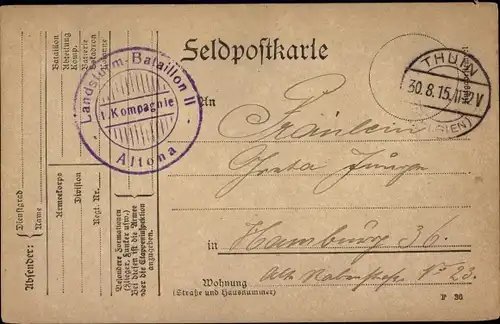 Feldpostkarte
Landsturm-Bataillon II
1. Kompagnie
Altona
THUIN
30.8.15. 11-12 V
(BELGIEN)
Bataillon
Abteilung
Komp.
Batterie
Eskadron
Kolonne
Armeekorps
Division
Regt. Nr.
Besondere Formationen
(Flieger, Funker usw.)
Bei diesen ist die Armee
oder die Etappeninspektion
anzugeben.
Absender:
Dienstgrad
Name
An
Fräulein
Greta
in Hamburg 36.
Alte Rabenstraße No 23.
Wohnung
(Straße und Hausnummer)
F 36